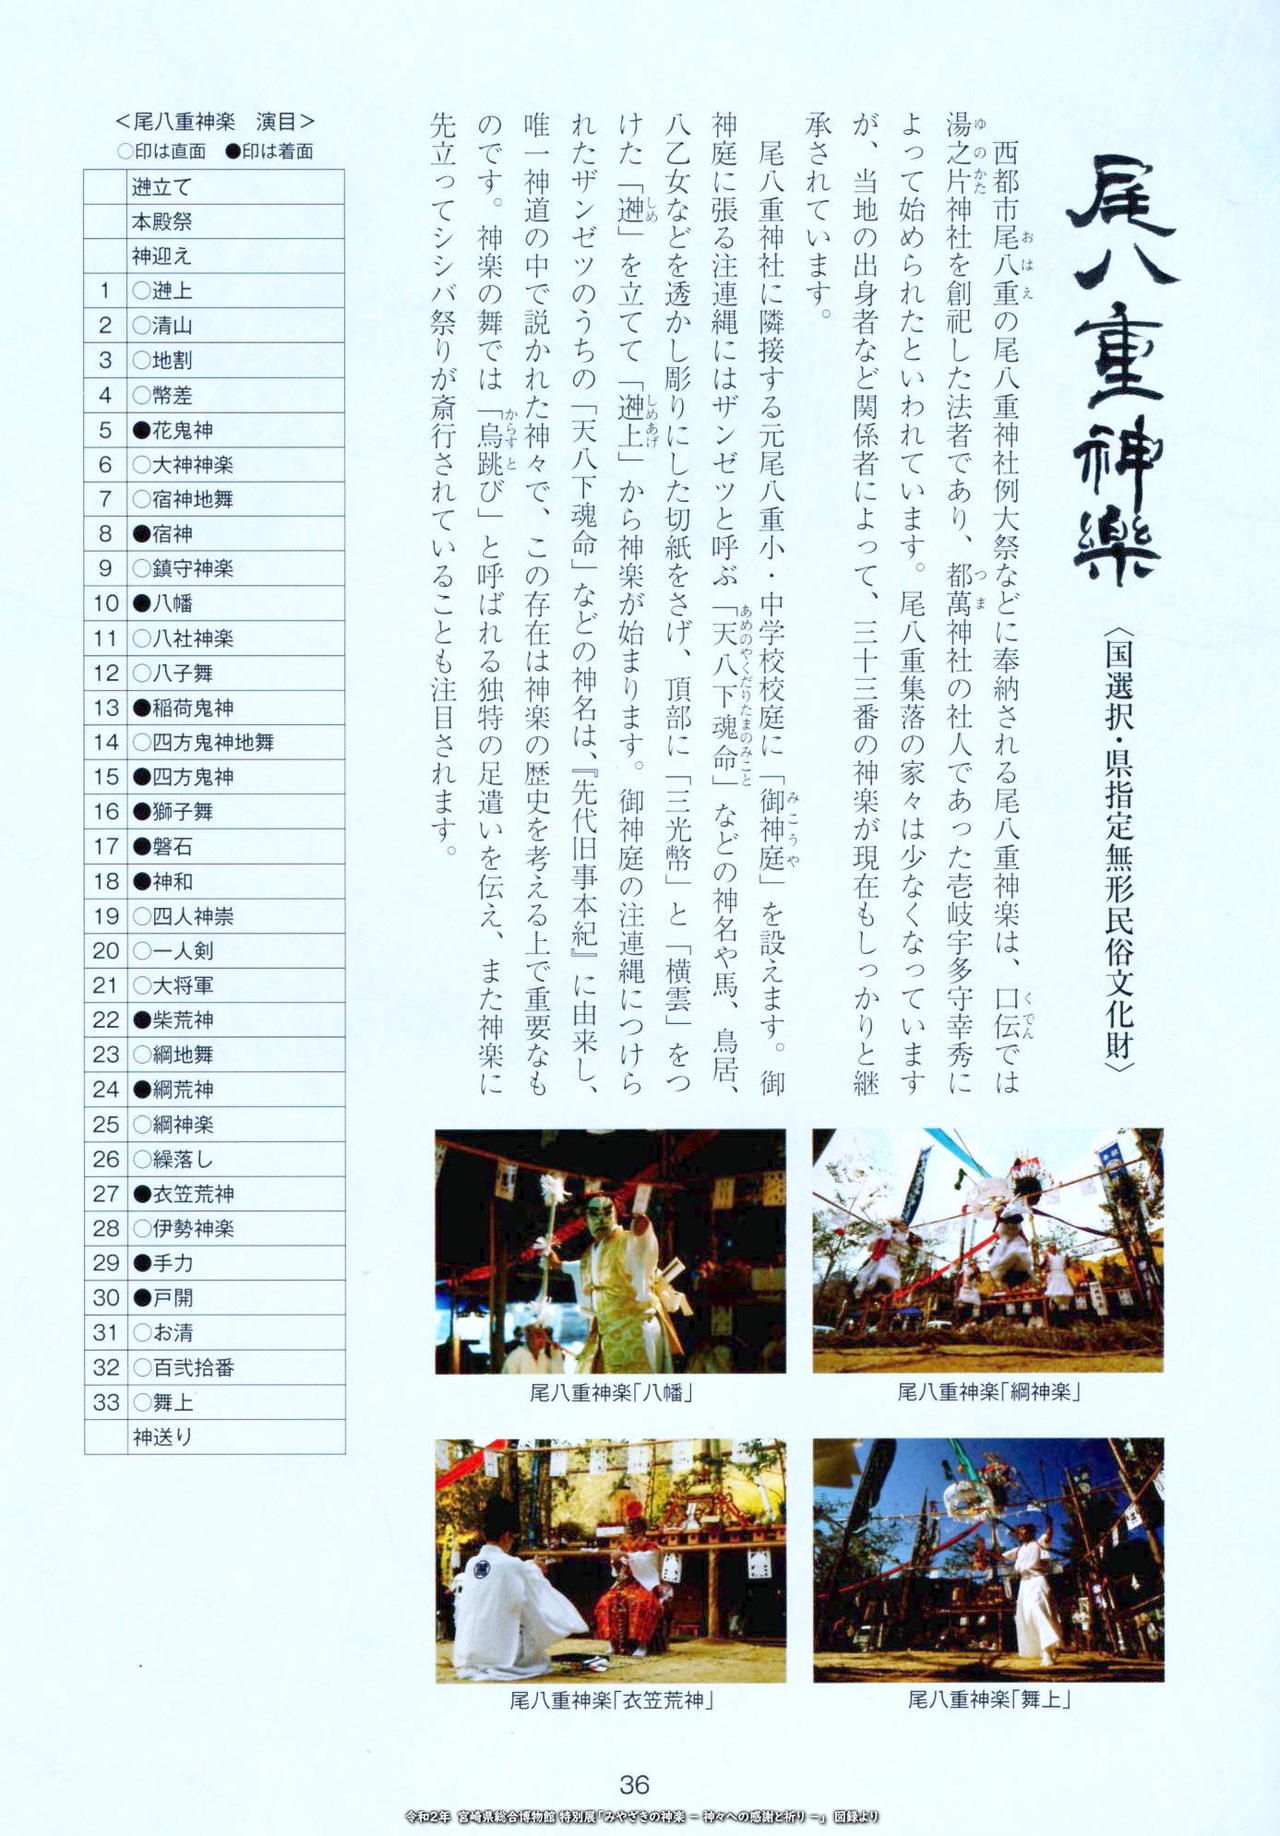 尾八重神樂
〈国選択・県指定無形民俗文化財〉
西都市尾八重の尾八重神社例大祭などに奉納される尾八重神楽は、口伝では
湯之片神社を創祀した法者であり、都萬神社の社人であった壱岐宇多守幸秀に
よって始められたといわれています。尾八重集落の家々は少なくなっています
が、当地の出身者など関係者によって、三十三番の神楽が現在もしっかりと継
承されています。
尾八重神社に隣接する元尾八重小・中学校校庭に「御神庭」を設えます。御
神庭に張る注連縄にはザンゼツと呼ぶ「天八下魂命」などの神名や馬、鳥居、
八乙女などを透かし彫りにした切紙をさげ、頂部に「三光幣」と「横雲」をつ
けた「」を立てて「上」から神楽が始まります。御神庭の注連縄につけら
れたザンゼツのうちの「天八下魂命」などの神名は、『先代旧事本紀』に由来し、
唯一神道の中で説かれた神々で、この存在は神楽の歴史を考える上で重要なも
のです。神楽の舞では「烏跳び」と呼ばれる独特の足遣いを伝え、また神楽に
先立ってシシバ祭りが斎行されていることも注目されます。
おはえ
くでん
ゆのかた
つま
みこうや
あめのやくだりたまのみこと
しめ
しめあげ
からすと
＜尾八重神楽　演目＞
○印は直面　●印は着面
立て
本殿祭
神迎え
1 ○上
2 ○清山
3 ○地割
4 ○幣差
5 ●花鬼神
6 ○大神神楽
7 ○宿神地舞
8 ●宿神
9 ○鎮守神楽
10 ●八幡
11 ○八社神楽
12 ○八子舞
13 ●稲荷鬼神
14 ○四方鬼神地舞
15 ●四方鬼神
16 ●獅子舞
17 ●磐石
18 ●神和
19 ○四人神崇
20 ○一人剣
21 ○大将軍
22 ●柴荒神
23 ○綱地舞
24 ●綱荒神
25 ○綱神楽
26 ○繰落し
27 ●衣笠荒神
28 ○伊勢神楽
29 ●手力
30 ●戸開
31 ○お清
32 ○百弐拾番
33 ○舞上
神送り
尾八重神楽「八幡」
尾八重神楽「綱神楽」
尾八重神楽「衣笠荒神」
尾八重神楽「舞上」
36
令和2年 宮崎県総合博物館 特別展「みやざきの神楽 － 神々への感謝と祈り －」 図録より